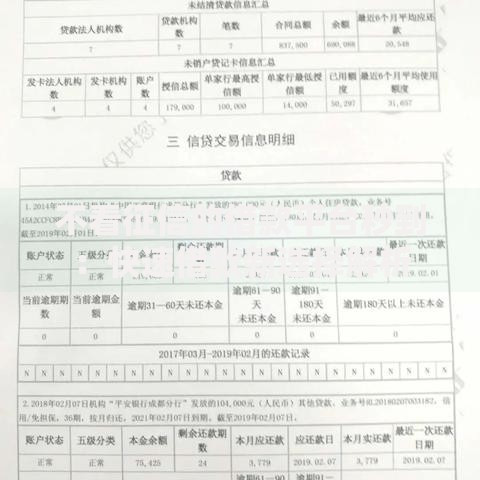 未结清贷款信息汇总
贷款法人机构数 贷款机构数 笔数 合同总额 余额 最近6个月平均应还款
7 7 7 837,500 690,088 20,548
未销户贷记卡信息汇总
发卡法人机构数 发卡机构数 账户数 授信总额 单家行最高授信额 单家行最低授信额 已用额度 最近6个月平均使用额度
4 4 4 179,000 100,000 14,000 50,297 31,657
三 信贷交易信息明细
贷款
(人民币)个人住房贷款,业务号
截至2019年02月01日。
账户状态 五级分类 最近一次还款日期
正常 正常 2019.02.01
当前逾期期数 当前逾期金额 逾期31—60天未还本金 逾期61—90天未还本金 逾期91—180天未还本金 逾期180天以上未还本金
0 0 0 0 0 0
2017年03月-2019年02月的还款记录
N N N N N N N N N N N N N N N N N N N N N N N N
2.2018年02月07日机构“平安银行成都分行”发放的104,000元(人民币)其他贷款,业务号RL20180207003182,信
用/免担保,36期,按月归还,2021年02月07日到期。截至2019年02月07日,
账户状态 五级分类 本金余额 剩余还款期数 本月应还款 应还款日 本月实还款 最近一次还款日期
正常 正常 75,425 24 3,779 2019.02.07 3,779 2019.02.07
逾期61—90 逾期91—